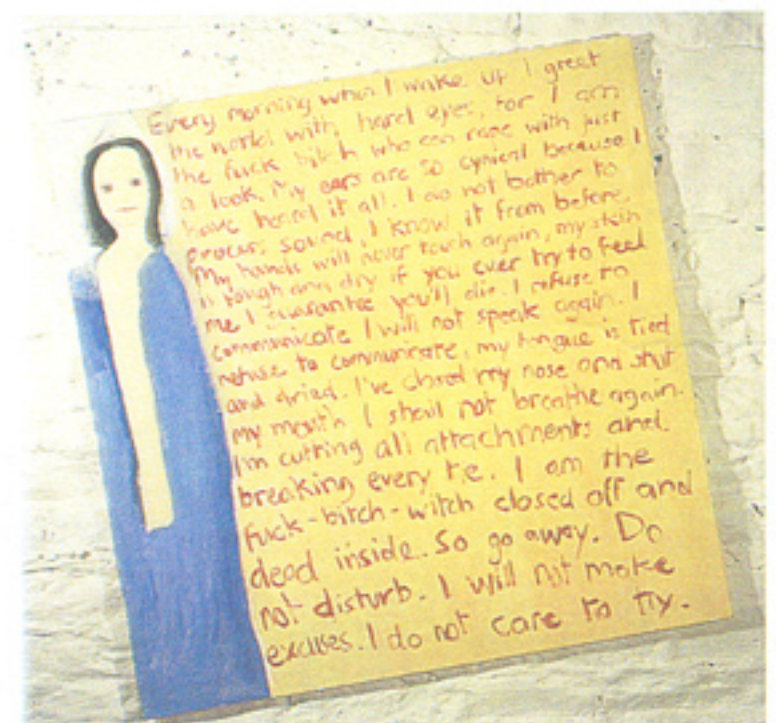 Every morning when I wake up I greet
the world with hard eyes, for I am
the fuck bitch who can rage with just
a look. My ears are so cynical because I
have heard it all. I do not bother to
process sound, I know it from before.
My hands will never touch again, my skin
is rough and dry if you ever try to feel
me I guarantee you'll die. I refuse to
communicate I will not speak again. I
refuse to communicate, my tongue is tied
and dried. I've closed my nose and shut
my mouth I shall not breathe again.
I'm cutting all attachments and
breaking every tie. I am the
fuck-bitch-witch closed off and
dead inside. So go away. Do
not disturb. I will not make
excuses. I do not care to try.